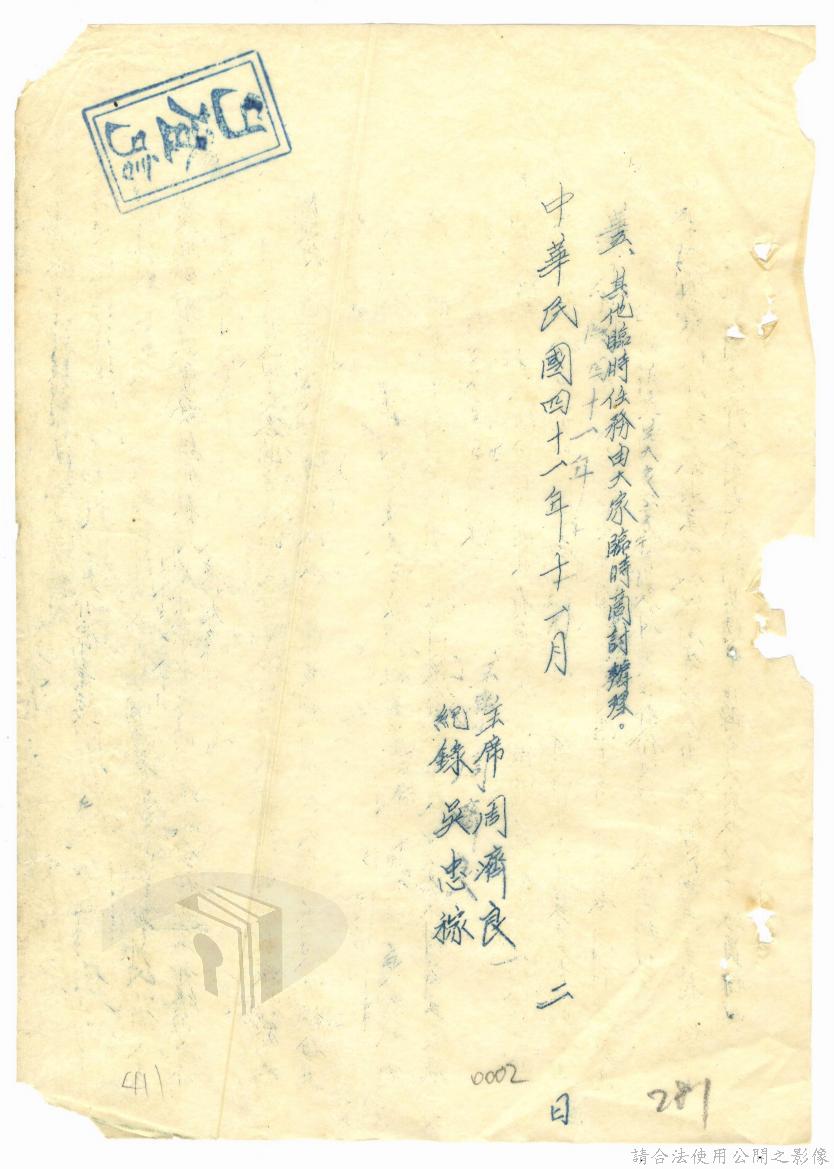 五、其他臨時任務由大家臨時商討辦理。
中華民國四十一年十一月二日
主席周濟良
紀錄吳忠稼
已登記
0002
281
請合法使用公開之影像